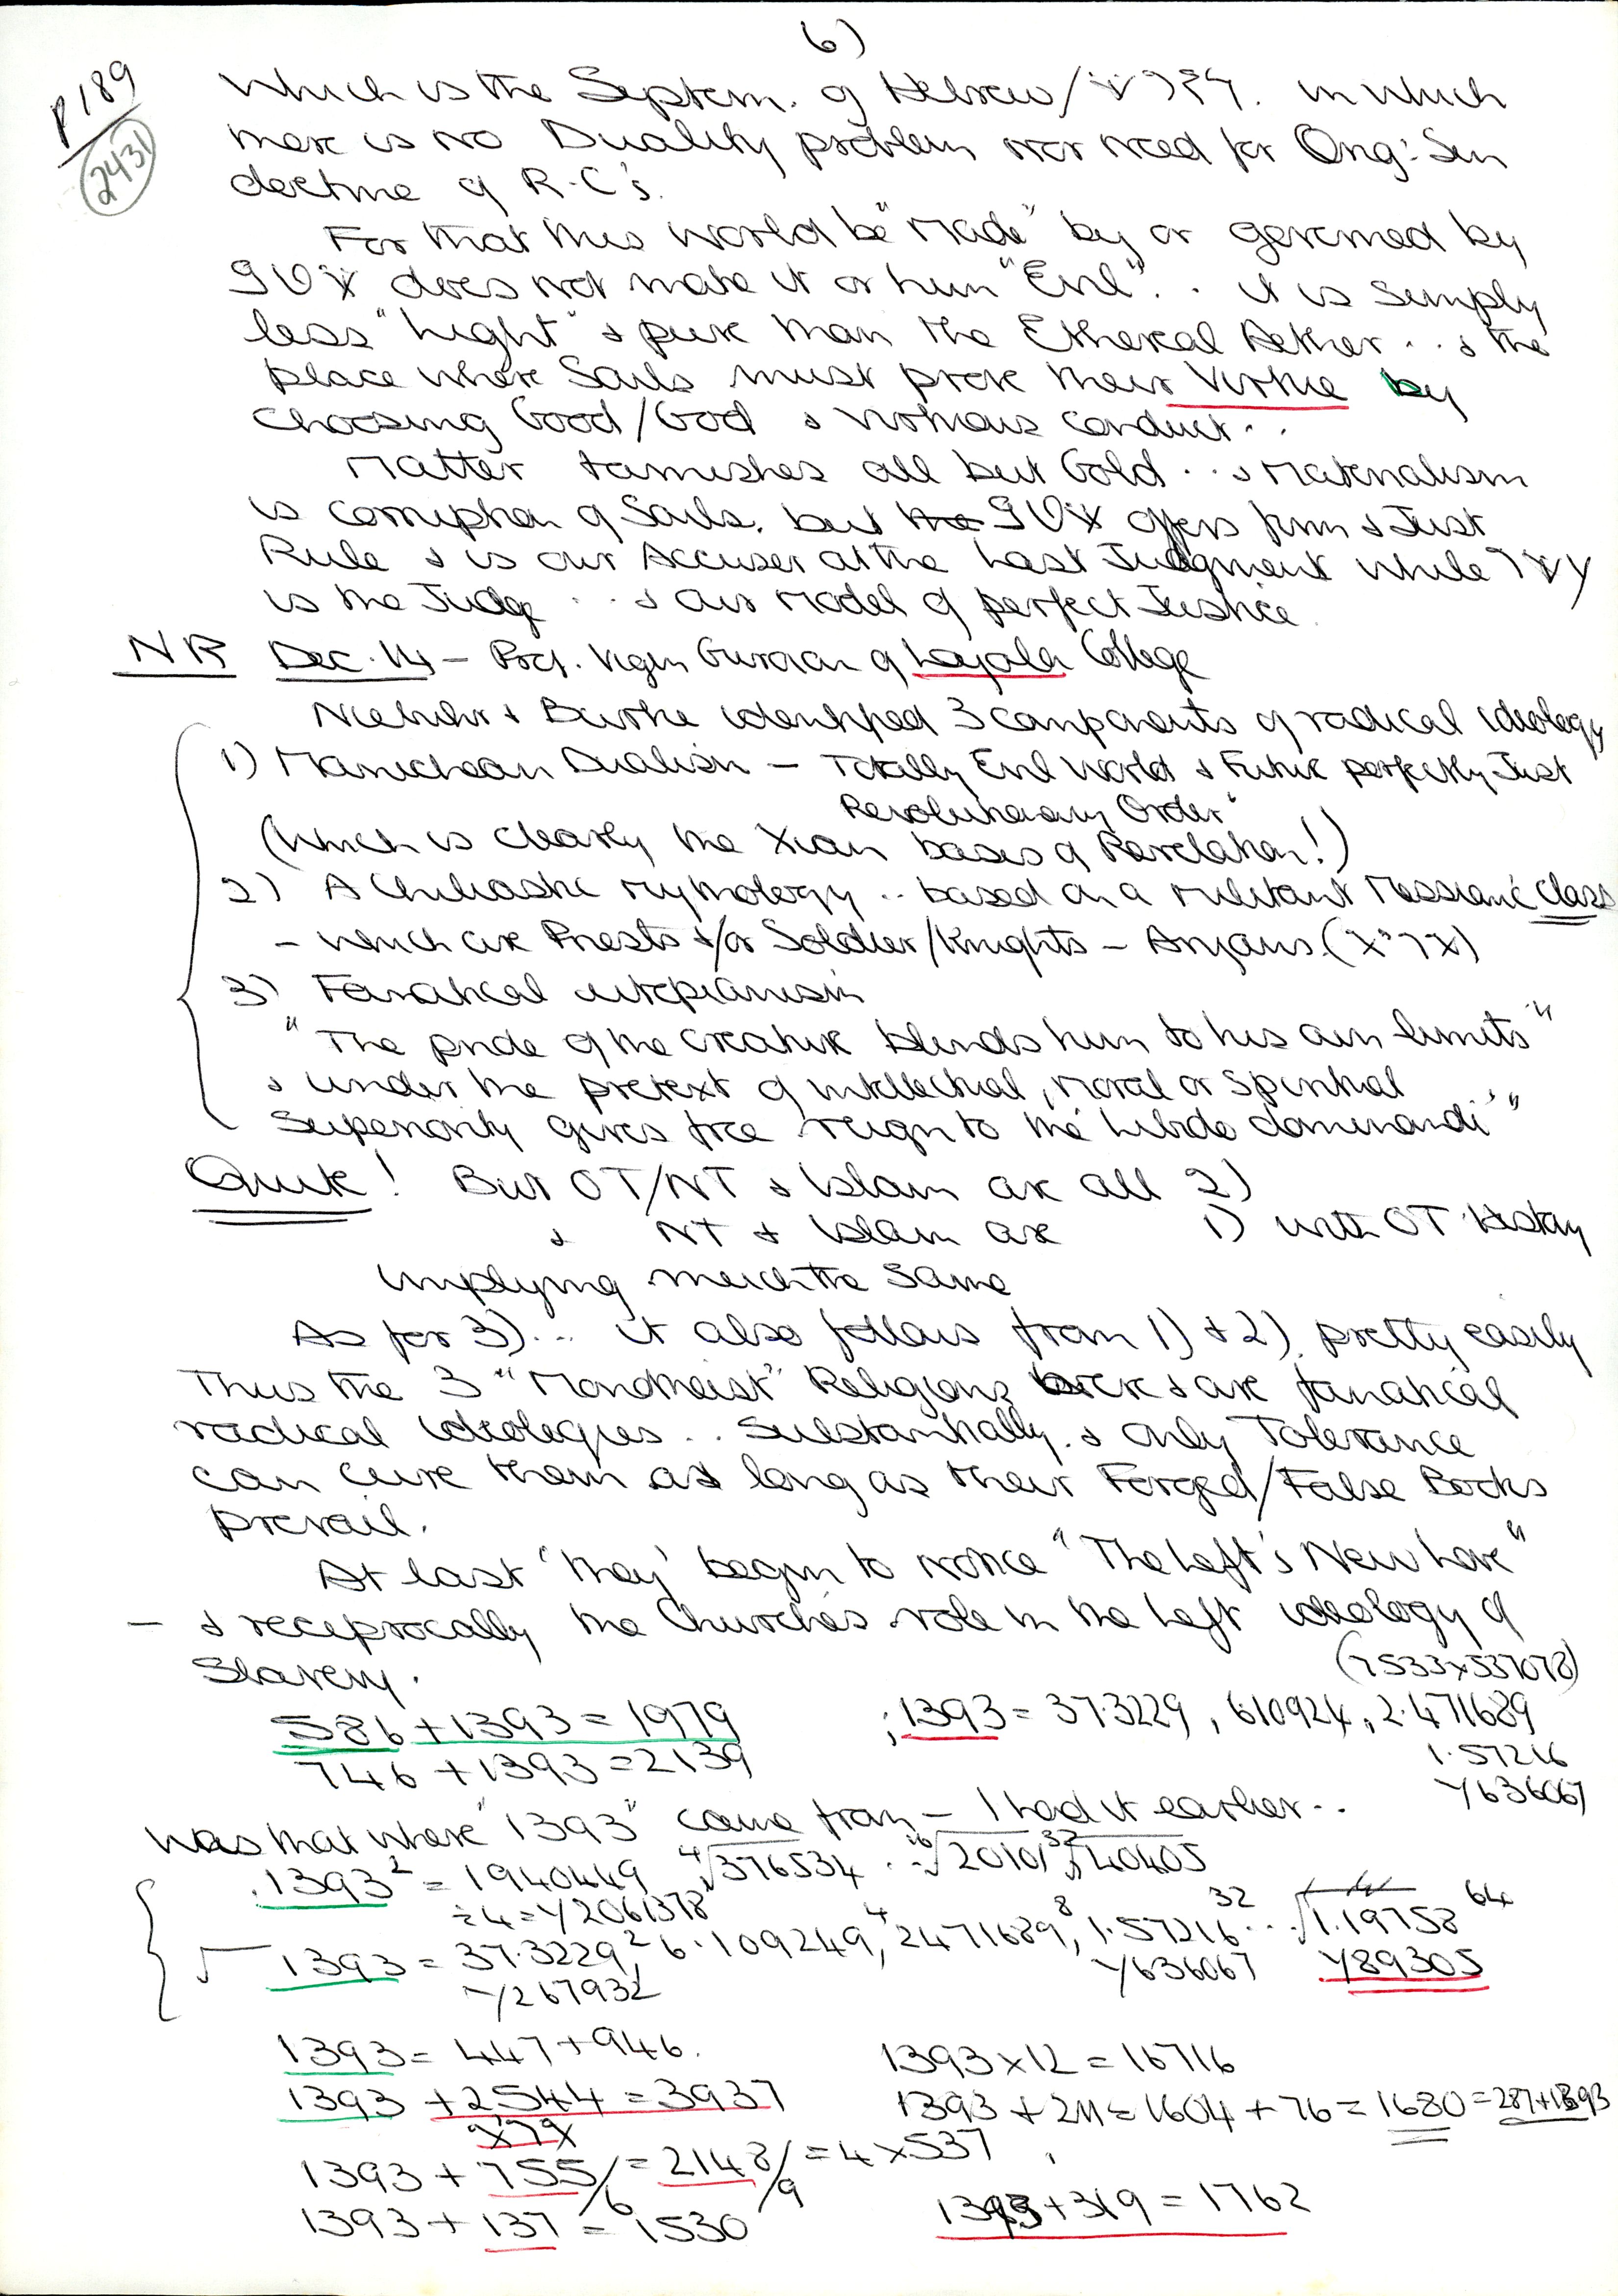 6)
P 189
2431
Which is the Septem. of Hebrew/ in which
there is no Duality problem nor need for Orig: Sin
doctrine of R.C's.
For that this World be "Made" by or governed by
does not make it or him "Evil". . it is simply
less "Light" & pure than the Ethereal Aether . . & the
place where Souls must prove their Virtue by
choosing Good/God & virtuous conduct . .
Matter tarnishes all but Gold . . & Materialism
is corruption of Souls. but offers firm & Just
Rule & is our Accuser at the Last Judgment while
is the Judge . . & our Model of perfect Justice.
NR Dec. 14 – Prof. Vigen Guroian of Loyola College
Niebuhr & Burke identified 3 components of radical ideology
1) Manichean Dualism – Totally Evil World & Future perfectly Just
Revolutionary Order"
(Which is clearly the Xian basis of Revelation!)
2) A Chiliastic Mythology .. based on a militant Messianic Class
– which are Priests &/or Soldier/Knights – Aryans.
3) Fanatical utopianism
"The pride of the creature blinds him to his own limits"
& under the pretext of intellectual, moral or spiritual
superiority gives free reign to the 'Libido dominandi'"
Quite! But OT/NT & Islam are all 2)
& NT & Islam are 1) with OT History
implying much the same
As for 3)... it also follows from 1) & 2) pretty easily
Thus the 3 "Monotheist" Religions were & are fanatical
radical ideologies .. substantially. & only Tolerance
can cure them as long as their Forged/False Books
prevail.
At last 'they' begin to notice "The Left's New Love"
– & reciprocally the Church's role in the Left ideology of
Slavery.
(7533x537078)
586 + 1393 = 1979
;1393 = 37.3229, 610924, 2.471689
746 + 1393 = 2139
1.57216
Y636067
Was that where "1393" came from – I had it earlier..
1393² = 1940449 ⁴√376534 . . ¹⁶√20101 ³²√40405
÷4 = Y2061378
√1393 = 37.3229², 6.109249⁴, 2471689⁸, 1.57216³² . . √1.19758⁶⁴
Y267932
Y636067
Y89305
1393 = 447 + 946.
1393 x 12 = 16716
1393 + 2544 = 3937
1393 + 211 = 1604 + 76 = 1680 = 287 + 1393
1393 + 755/6 = 2148/9 = 4 x 537
1393 + 137 = 1530
1393 + 319 = 1762